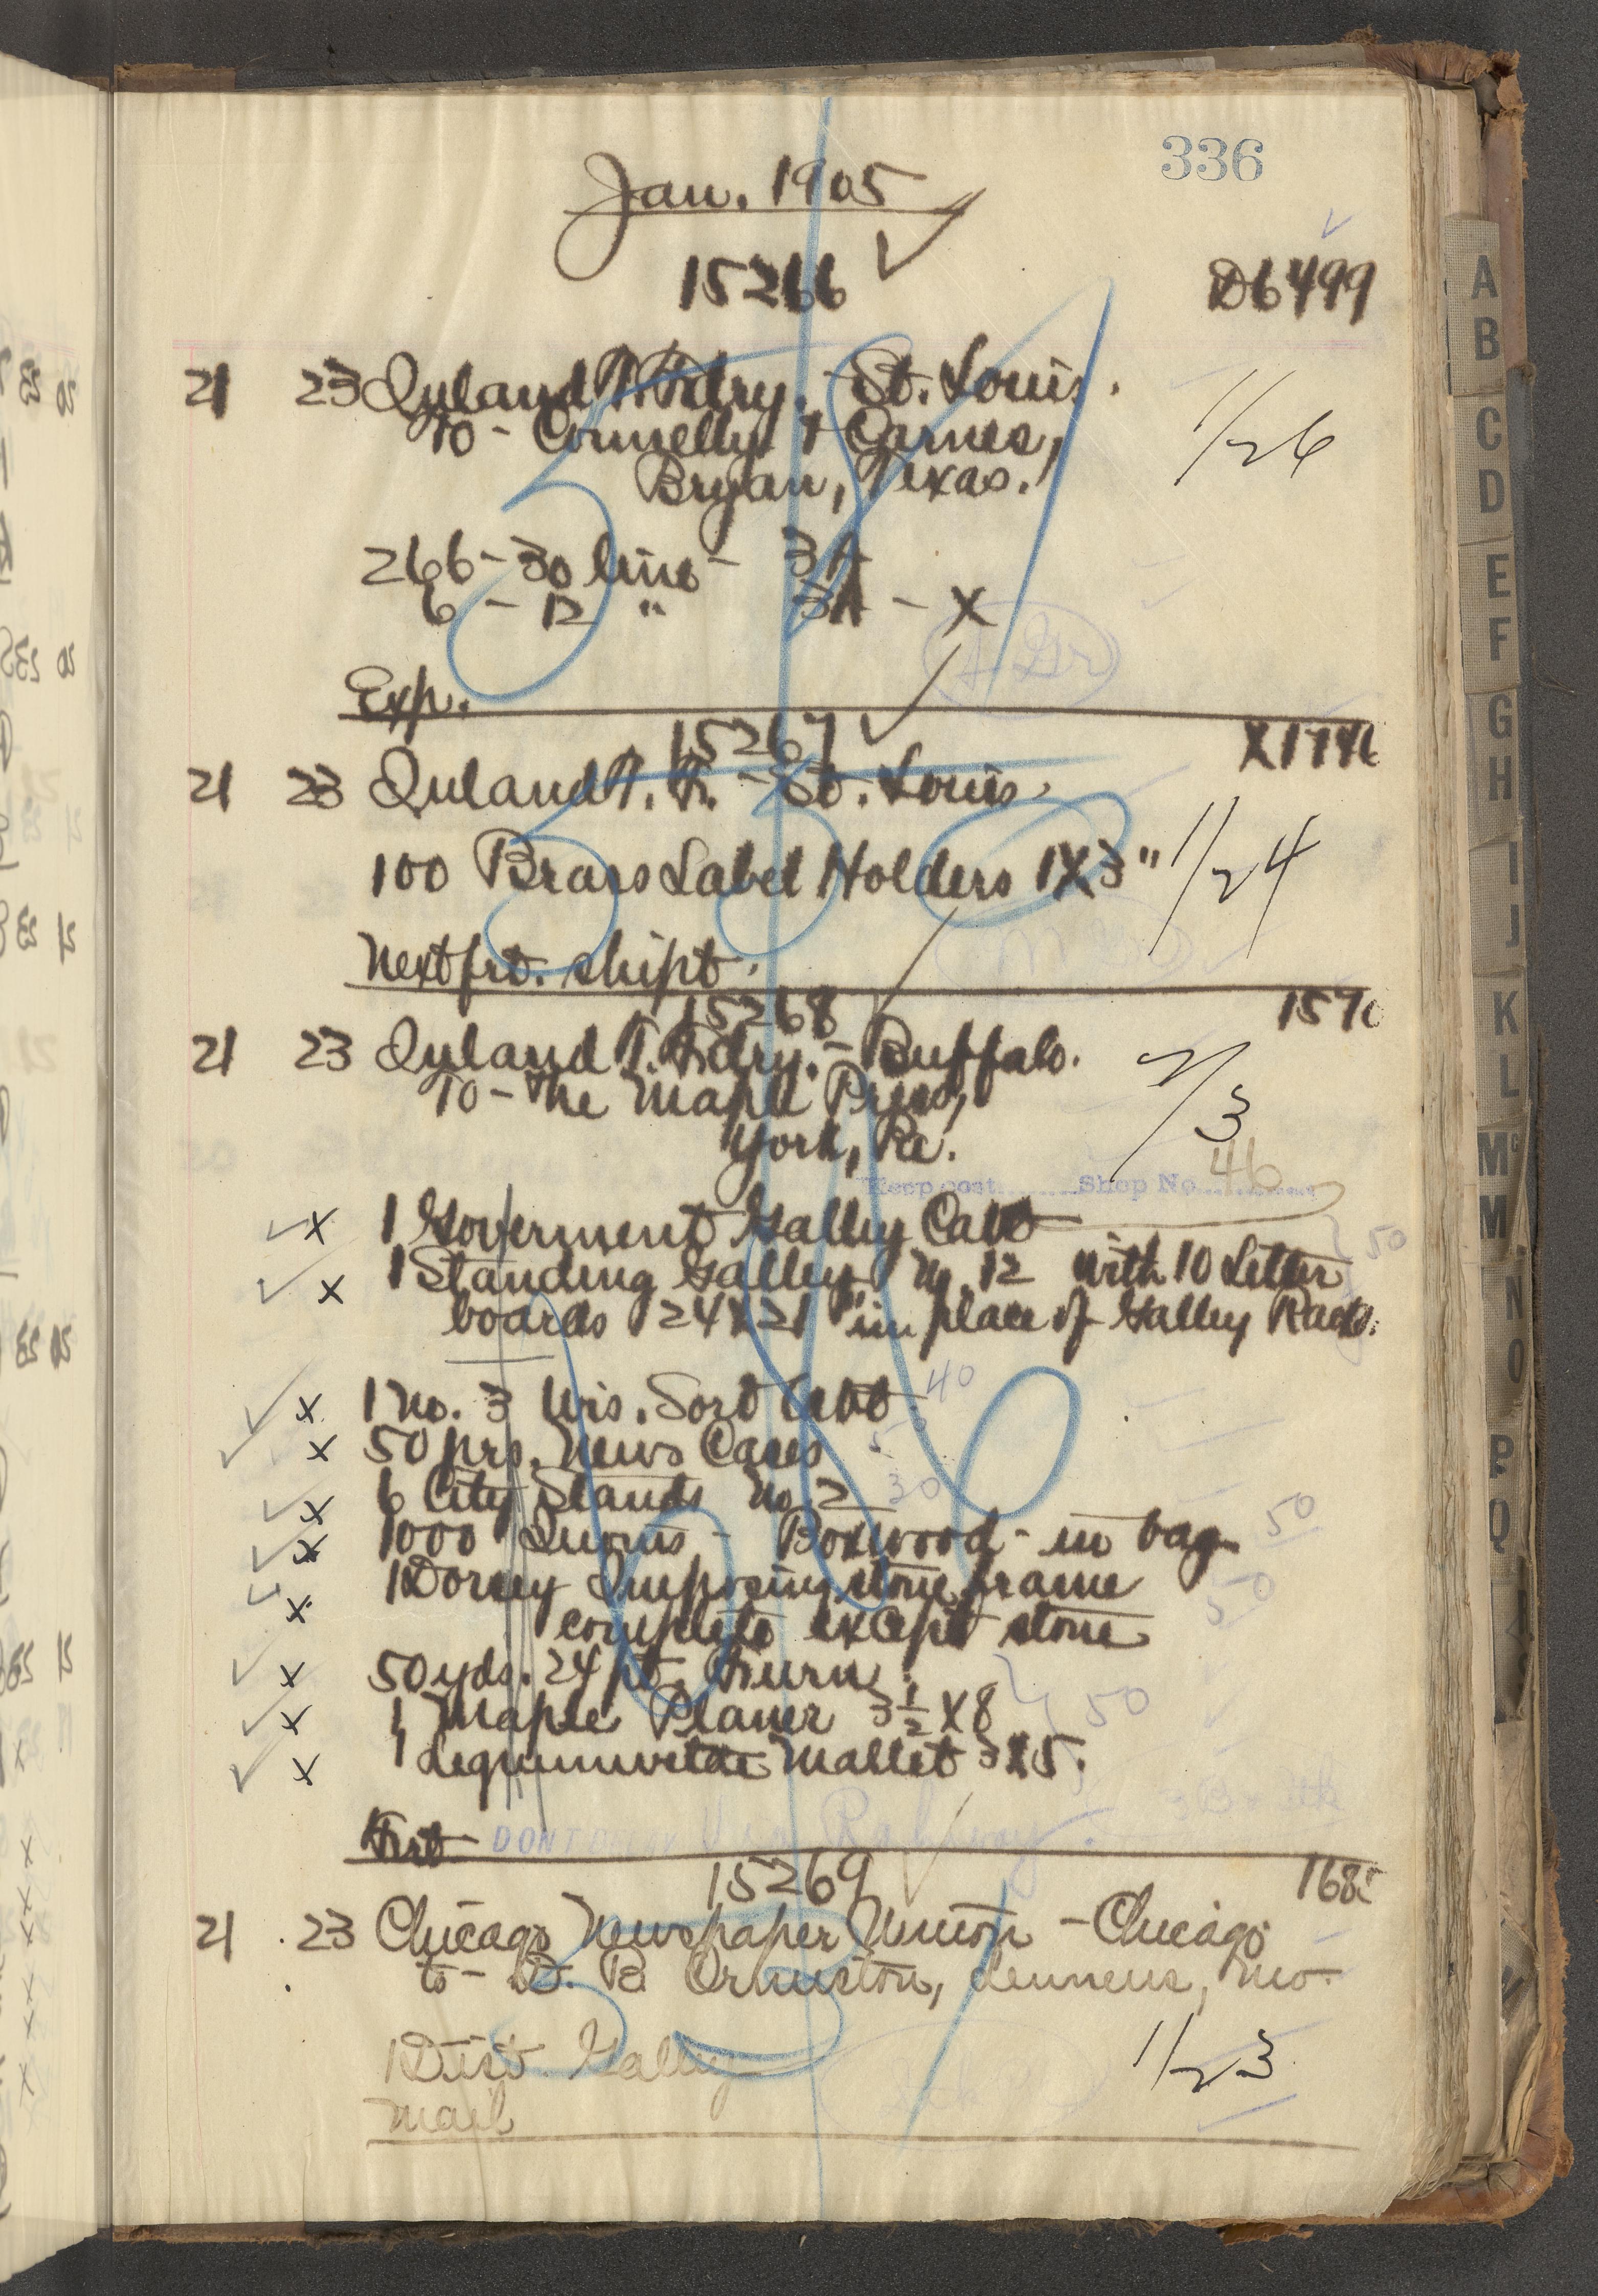 336
Jan. 1905
15266 D6499
21 23 Inland T. Fdry. - St. Louis.
To - Connelly & Carnes,
Bryan, Texas.
1/26
266 - 30 line - 3A
6 - 12 " 3A - X
Exp.
15267 X1746
21 23 Inland T. F. - St. Louis
100 Brass Label Holders 1X3"
1/24
Next frt. shipt.
15268 1570
21 23 Inland T. Fdry. - Buffalo.
To - The Maple Press,
York, Pa.
2/3
Keep cost Shop No. 46
x 1 Goverment Galley Cabt
x 1 Standing Galley No. 12 with 10 Letter
boards 24X21 in place of Galley Racks.
50
x 1 No. 3 Wis. Sort Cabt 40
x 50 prs. News Cases
x 6 City Stands No. 2 30
x 1000 Quoins - Boxwood - in bag 50
x 1 Dorsey Imposing stone frame 50
complete except stone
x 50 yds. 24 pt. Furn.
x 1 Maple Planer 3½ X 8 50
x 1 Lignumvitae Mallet 3X5.
Frt DONT
15269 1685
21 23 Chicago Newspaper Union - Chicago
to - D. B. Ormiston, Linneus, Mo.
1 Dist. Galley
1/23
Mail
A
B
C
D
E
F
G
H
I
J
K
L
Mc
M
N
O
P
Q